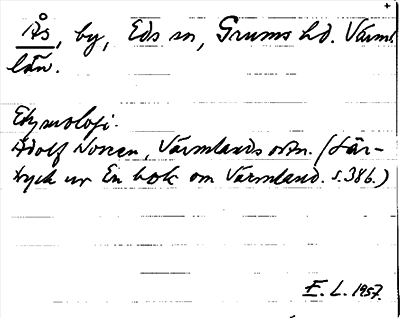 Ås, by, Eds sn, Grums hd. Värml.
län.
Etymologi.
Adolf Noreen, Värmlands ortn. (Sär-
tryck ur En bok om Värmland. s. 386.)
E. L. 1957.